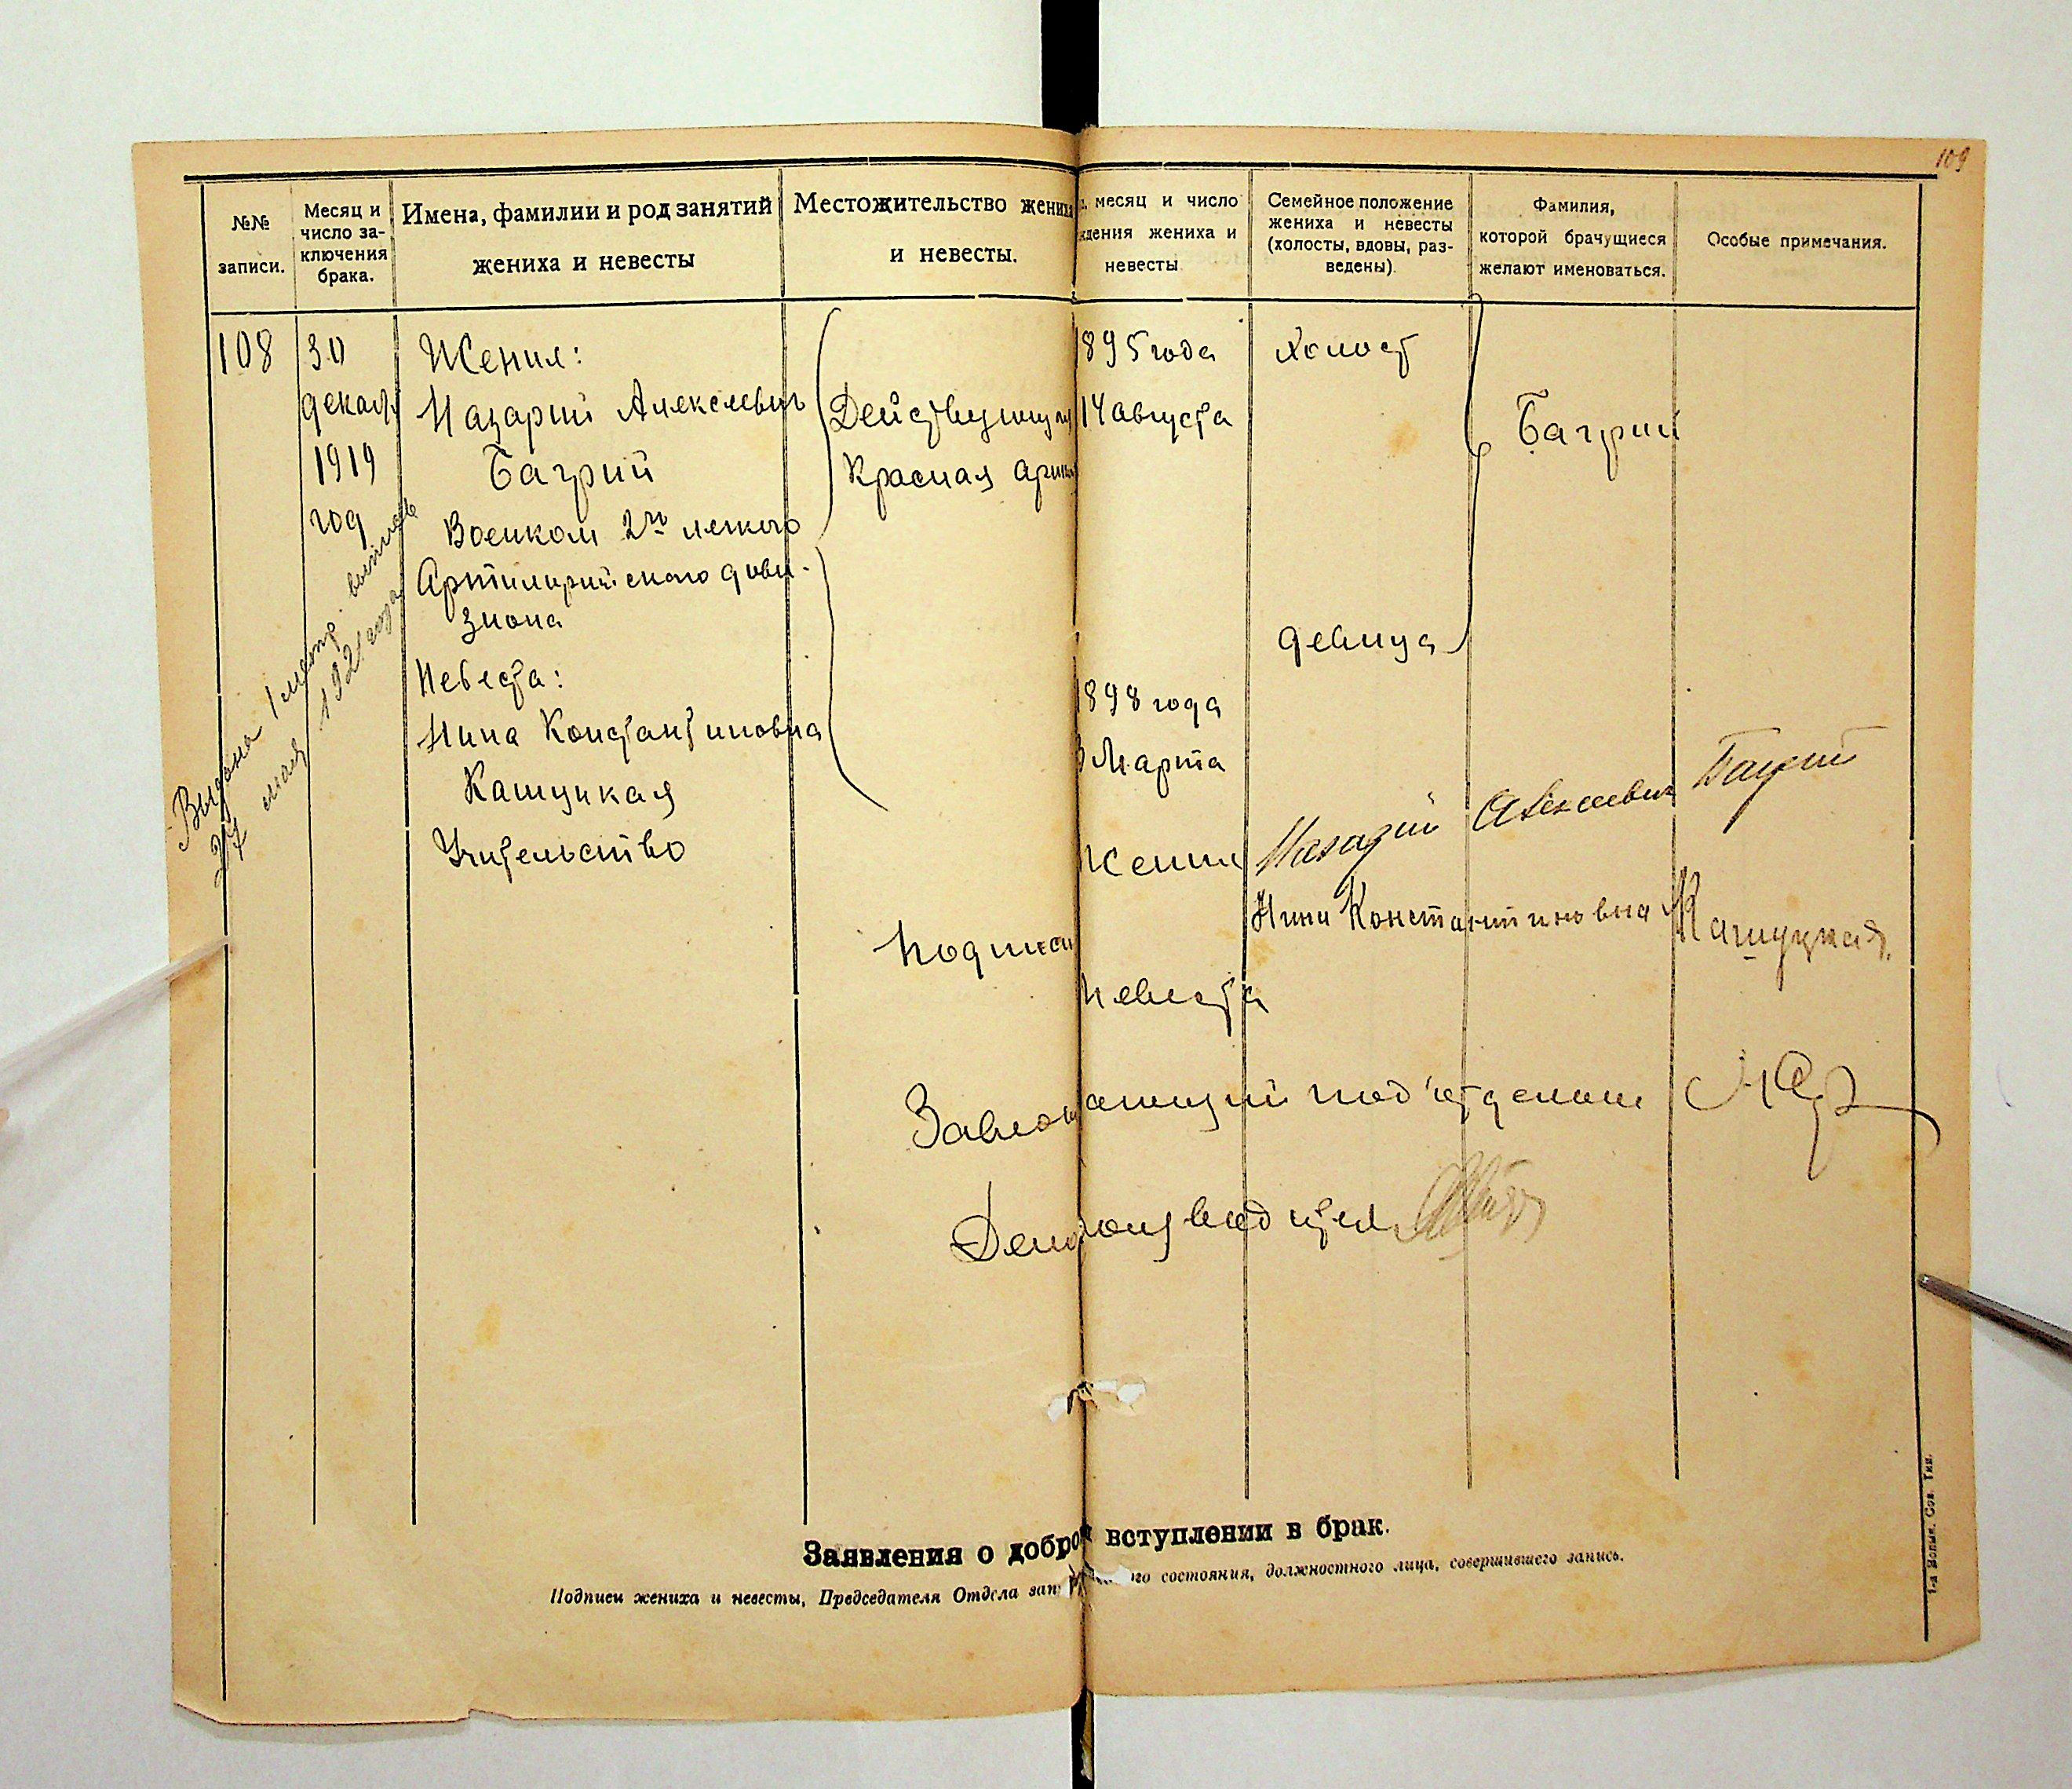 109
№№ записи.
Месяц и число за-
ключения брака.
Имена, фамилии и род занятий
жениха и невесты
Местожительство жениха
и невесты.
месяц и число
ждения жениха и
невесты
Семейное положение
жениха и невесты
(холосты, вдовы, раз-
ведены).
Фамилия,
которой брачущиеся
желают именоваться.
Особые примечания.
108
30
декабр
1919
год
Жених:
Назарий Алексеевич
Багрий
Военком 2го легкого
Артиллерийского диви-
зиона
Невеста:
Нина Константиновна
Кашуцкая
Учительство
Действующая
Красная армия
1895 года
14 августа
1898 года
3 Марта
холост
девица
Багрий
Выдана 1 метр. выпись
27 мая 1921 года
Подписи
Жених Назарий Алексеевич Багрий
Нина Константиновна Кашуцкая.
Невеста
Заведывающий под'отделом
Делопроизводител
Заявления о добро вступлении в брак.
Подписи жениха и невесты, Председателя Отдела зап го состояния, должностного лица, совершившего запись.
1-я Волын. Сов. Тип.